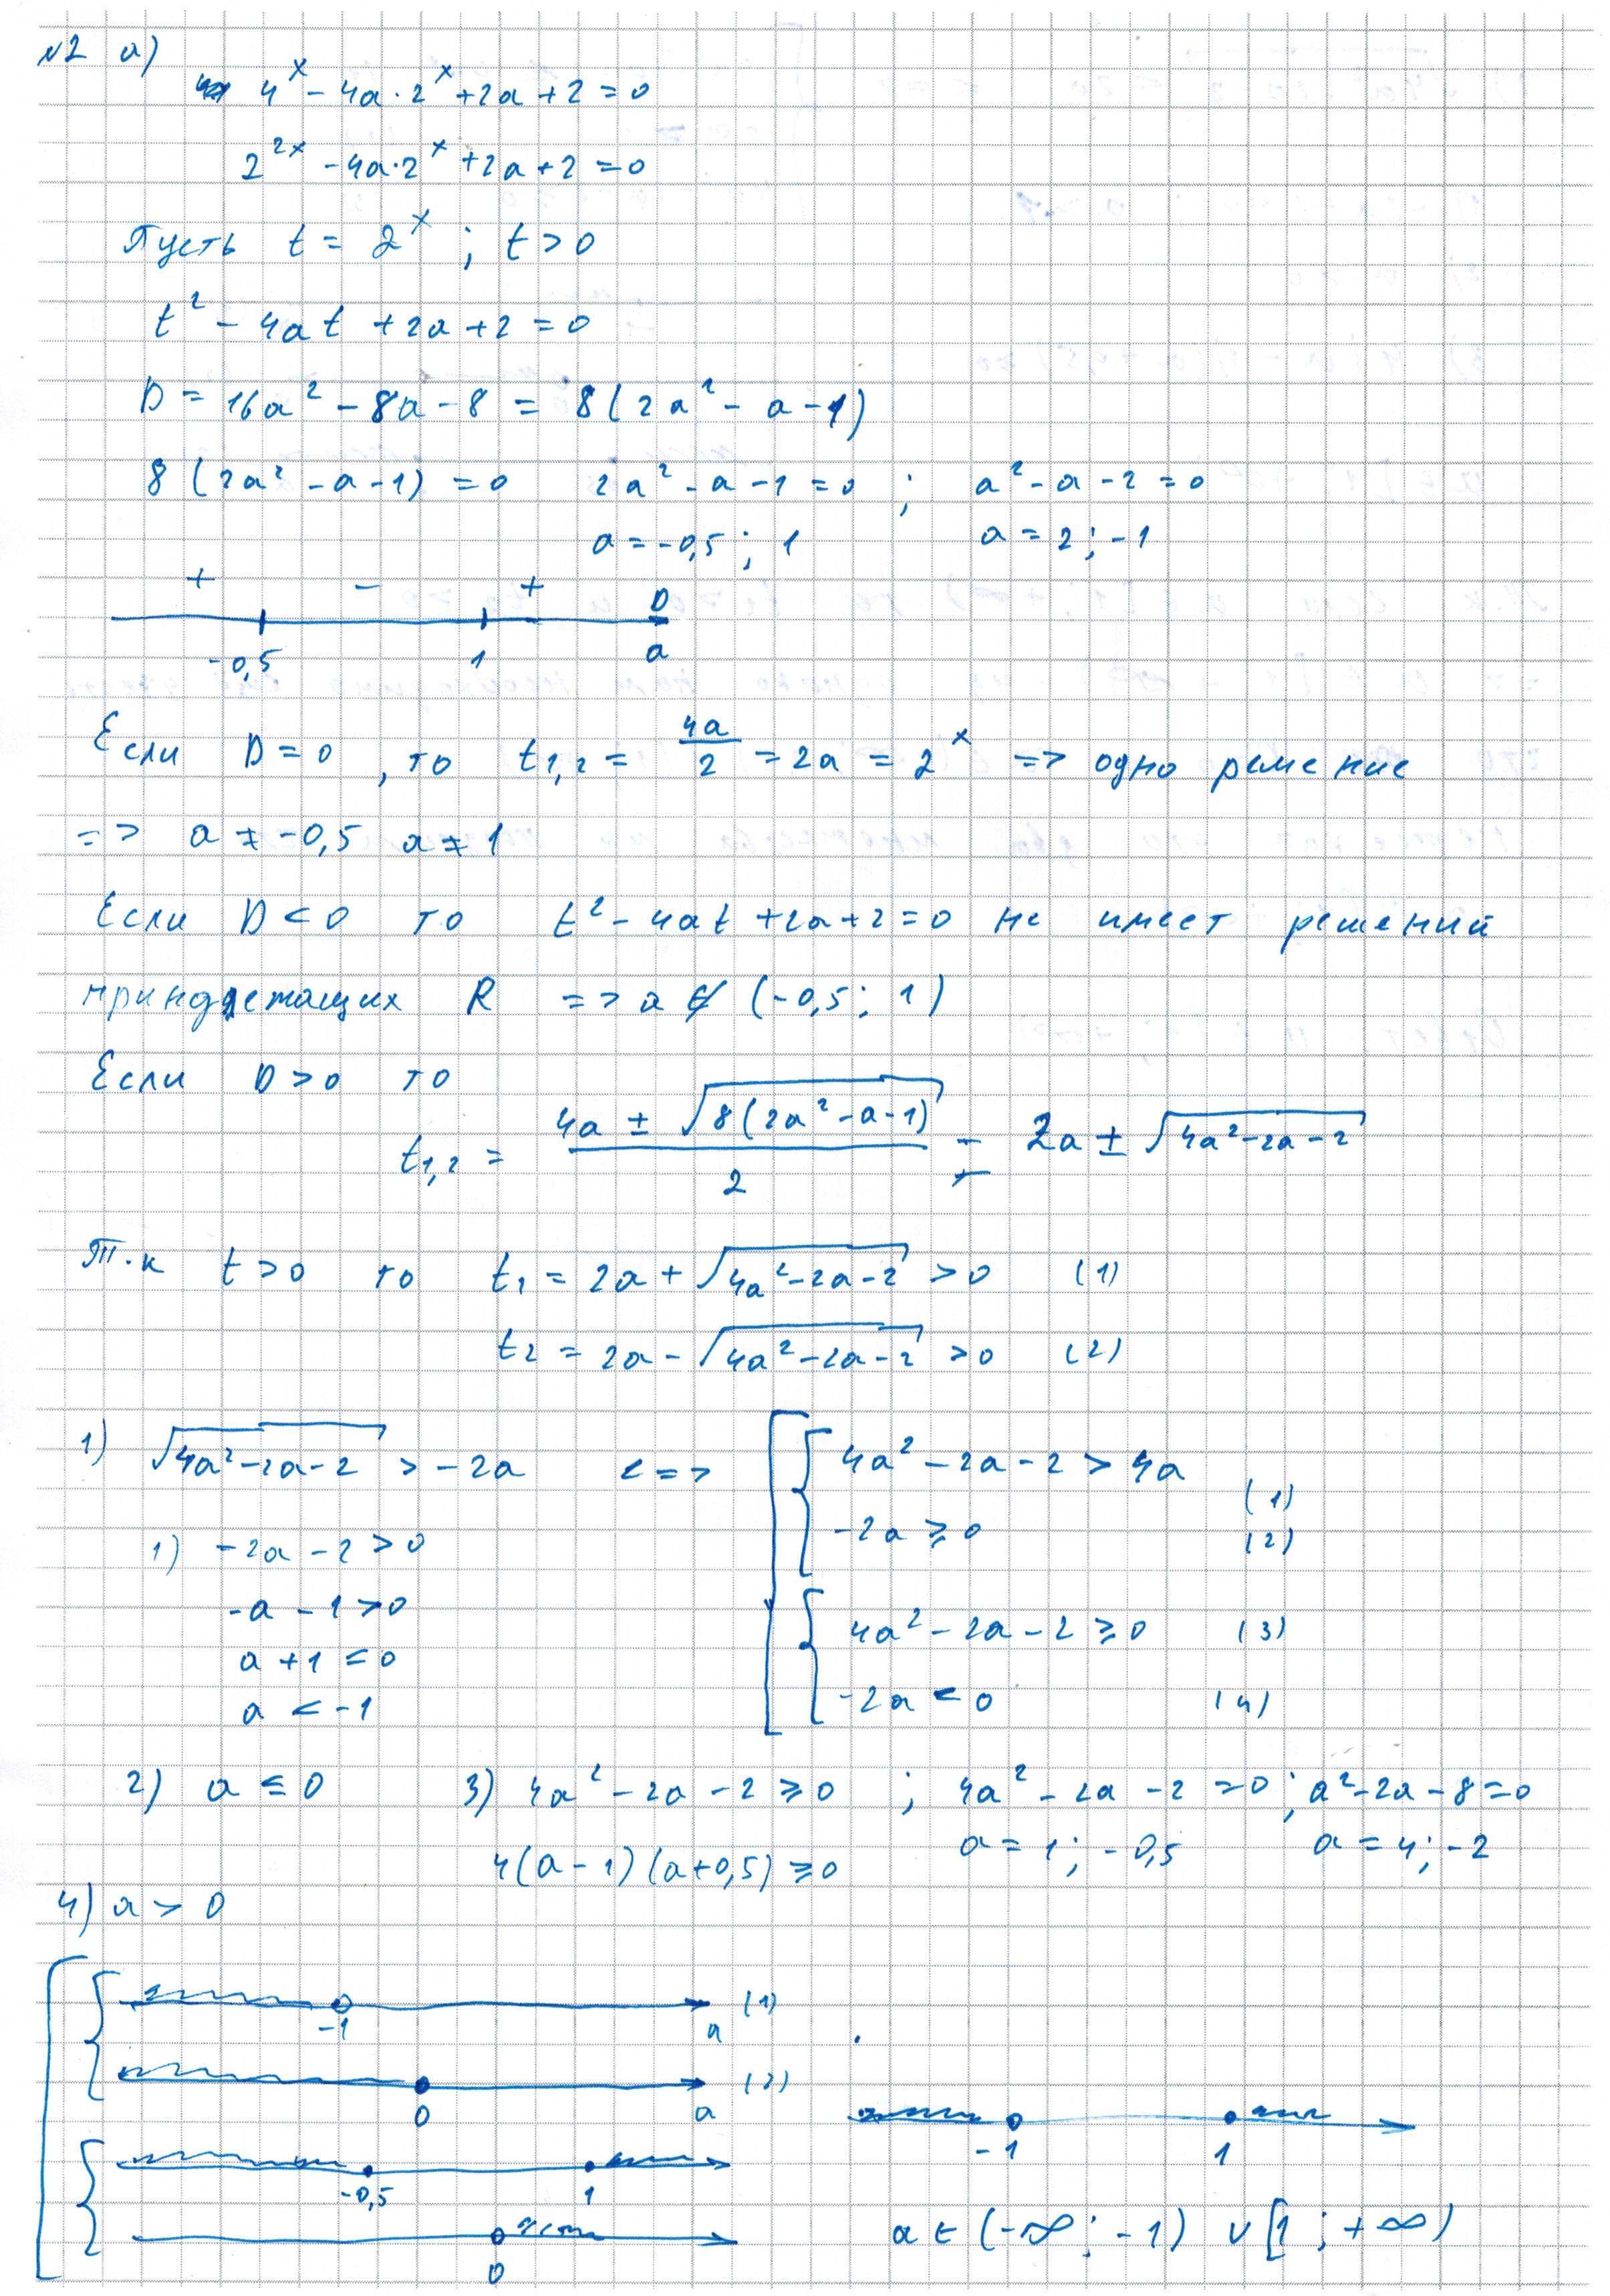 №2 а)
4^x - 4a·2^x + 2a + 2 = 0
2^{2x} - 4a·2^x + 2a + 2 = 0
Пусть t = 2^x ; t > 0
t² - 4at + 2a + 2 = 0
D = 16a² - 8a - 8 = 8(2a² - a - 1)
8(2a² - a - 1) = 0   2a² - a - 1 = 0 ;   a² - a - 2 = 0
a = -0,5 ; 1   a = 2 ; -1
+ - + D
-0,5 1 a
Если D = 0 , то t₁,₂ = 4a/2 = 2a = 2^x => одно решение
=> a ≠ -0,5 a ≠ 1
Если D < 0 то t² - 4at + 2a + 2 = 0 не имеет решений
R => a ∉ (-0,5 ; 1)
Если D > 0 то
t₁,₂ = (4a ± √(8(2a² - a - 1)))/2 = 2a ± √(4a² - 2a - 2)
Т.к t > 0 то t₁ = 2a + √(4a² - 2a - 2) > 0 (1)
t₂ = 2a - √(4a² - 2a - 2) > 0 (2)
1) √(4a² - 2a - 2) > -2a <=> [ { 4a² - 2a - 2 > 4a (1)
-2a ≥ 0 (2)
1) -2a - 2 > 0
-a - 1 > 0
{ 4a² - 2a - 2 ≥ 0 (3)
a + 1 < 0
-2a < 0 (4)
a < -1
2) a ≤ 0   3) 4a² - 2a - 2 ≥ 0 ; 4a² - 2a - 2 = 0 ; a² - 2a - 8 = 0
4(a - 1)(a + 0,5) ≥ 0   a = 1 ; -0,5   a = 4 ; -2
4) a > 0
(1)
-1 a
(2)
0 a
-1 1
-0,5 1
0
a ∈ (-∞ ; -1) ∪ [1 ; +∞)